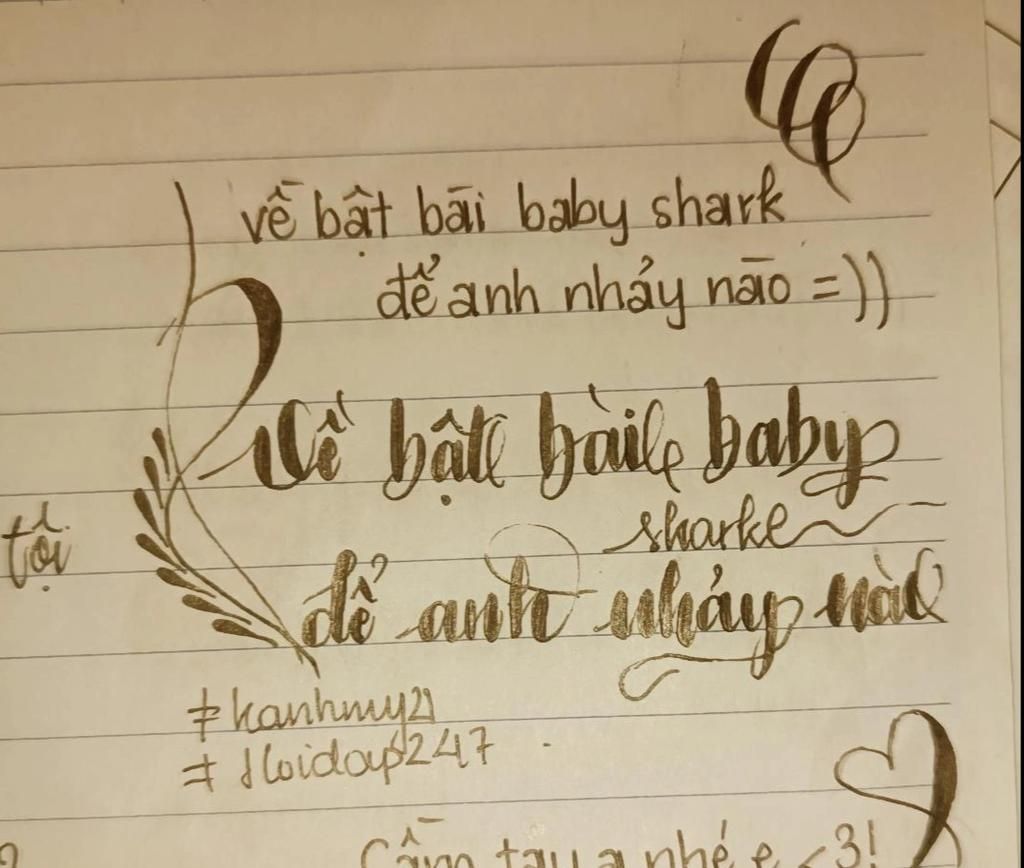 về bật bài baby shark
để anh nhảy nào =))
Về bật bài baby
shark
để anh nhảy nào
tội
#kanhmy21
#Hoidap247
Cầm tay a nhé e <3!